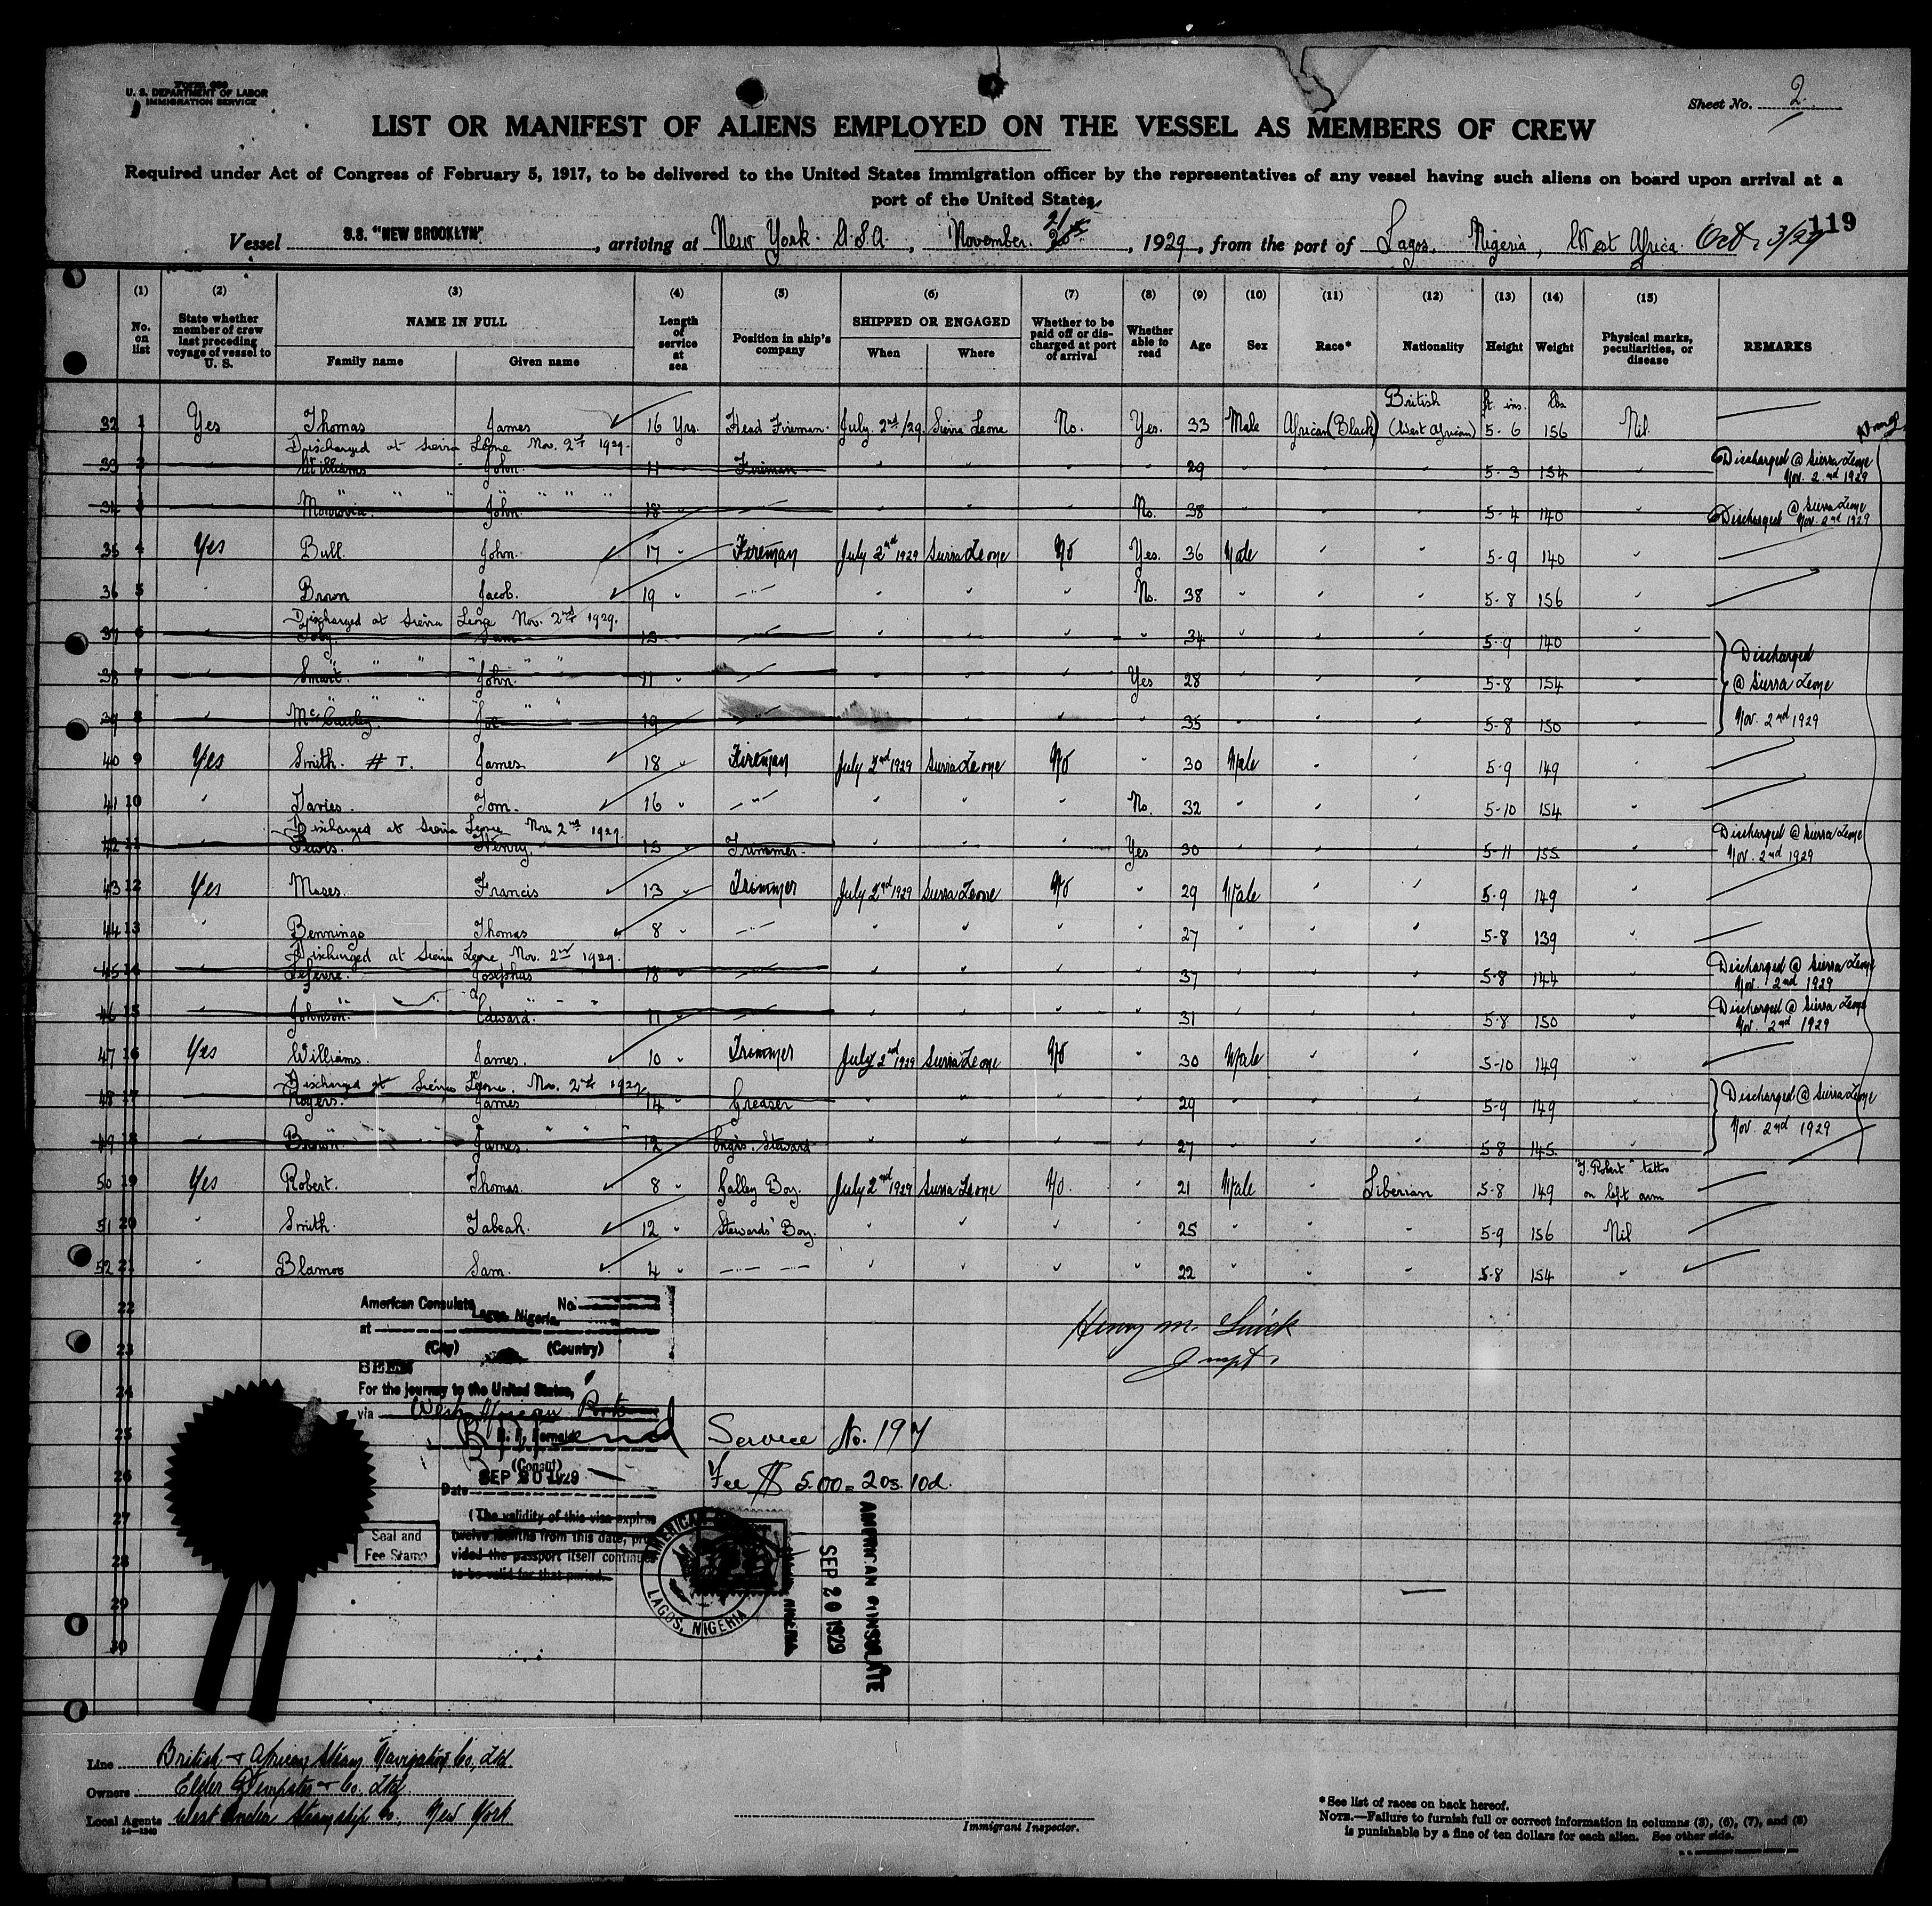 Form 689
U. S. DEPARTMENT OF LABOR
IMMIGRATION SERVICE
Sheet No. 2
LIST OR MANIFEST OF ALIENS EMPLOYED ON THE VESSEL AS MEMBERS OF CREW
Required under Act of Congress of February 5, 1917, to be delivered to the United States immigration officer by the representatives of any vessel having such aliens on board upon arrival at a
port of the United States
119
Vessel S.S. "NEW BROOKLYN", arriving at New York. U.S.A., November 21st, 1929, from the port of Lagos, Nigeria, West Africa. Oct. 3/29
(1) (2) (3) (4) (5) (6) (7) (8) (9) (10) (11) (12) (13) (14) (15)
No. on list State whether member of crew last preceding voyage of vessel to U. S. NAME IN FULL Family name Given name Length of service at sea Position in ship's company SHIPPED OR ENGAGED When Where Whether to be paid off or discharged at port of arrival Whether able to read Age Sex Race* Nationality Height Weight Physical marks, peculiarities, or disease REMARKS
British ft. ins. lbs
32 1 Yes Thomas James 16 Yrs. Head Fireman. July. 2nd/29. Sierra Leone No. Yes. 33 Male African (Black) (West African) 5-6 156 Nil.
Discharged at Sierra Leone Nov. 2nd 1929.
33 2 " Williams John 11 " Fireman " " " " 29 " " " 5-3 154 " Discharged @ Sierra Leone Nov. 2nd 1929
34 3 " Monrovia. John. 18 " " " " " No. 38 " " " 5-4 140 " Discharged @ Sierra Leone Nov. 2nd 1929
35 4 Yes Bull. John. 17 " Fireman July 2nd 1929 Sierra Leone No Yes. 36 Male " " 5-9 140 "
36 5 " Brown Jacob. 19 " " " " " No. 38 " " " 5-8 156 "
Discharged at Sierra Leone Nov. 2nd 1929.
37 6 " Toby. Sam 13 " " " " " " 34 " " " 5-9 140 "
38 7 " Smart. John. 11 " " " " " Yes 28 " " " 5-8 154 " Discharged @ Sierra Leone Nov. 2nd 1929
39 8 " McCauley. Joe 19 " " " " " " 35 " " " 5-8 150 "
40 9 Yes Smith. # 1. James 18 " Fireman July 2nd 1929 Sierra Leone No " 30 Male " " 5-9 149 "
41 10 " Davies. Tom. 16 " " " " " No. 32 " " " 5-10 154 "
Discharged at Sierra Leone Nov. 2nd 1929.
42 11 " Lewis. Henry. 15 " Trimmer. " " " Yes 30 " " " 5-11 155 " Discharged @ Sierra Leone Nov. 2nd 1929
43 12 Yes Moses. Francis 13 " Trimmer July 2nd 1929 Sierra Leone No " 29 Male " " 5-9 149 "
44 13 " Bennings Thomas 8 " " " " " " 27 " " " 5-8 139 "
Discharged at Sierra Leone Nov. 2nd 1929.
45 14 " Lefevre. Josephus 18 " " " " " " 37 " " " 5-8 144 " Discharged @ Sierra Leone Nov. 2nd 1929
46 15 " Johnson. Edward. 11 " " " " " 31 " " " 5-8 150 " Discharged @ Sierra Leone Nov. 2nd 1929
47 16 Yes Williams. James. 10 " Trimmer July 2nd 1929 Sierra Leone No " 30 Male " " 5-10 149 "
Discharged at Sierra Leone. Nov. 2nd 1929
48 17 Rogers. James 14 " Greaser " " " " 29 " " " 5-9 149 " Discharged @ Sierra Leone
49 18 " Brown James. 12 " Engrs. Steward " " " " 27 " " " 5-8 145 " Nov. 2nd 1929
50 19 Yes Robert. Thomas. 8 " Galley Boy. July 2nd 1929 Sierra Leone No. " 21 Male " Liberian 5-8 149 "T. Robert" tattoo on left arm
51 20 " Smith. Tabeah. 12 " Stewards' Boy. " " " " 25 " " " 5-9 156 Nil
52 21 " Blamoo Sam. 4 " " " " " " 22 " " " 5-8 154 "
22
23
24
25
26
27
28
29
30
American Consulate No.
at Lagos, Nigeria.
(City) (Country)
SEEN
For the journey to the United States,
via West African Ports
(Consul)
Date SEP 20 1929
(The validity of this visa expires
twelve months from this date, pro-
vided the passport itself continues
to be valid for that period.
Seal and
Fee Stamp
Henry M.
Inspt.
Service No. 197
Fee $ 5.00 = 20s. 10d.
AMERICAN
LAGOS, NIGERIA
SEP 20 1929
AMERICAN CONSULATE
Line British & African Steam Navigation Co., Ltd.
Owners Elder Dempster & Co. Ltd
Local Agents West India Steamship Co. New York
14—1240
Immigrant Inspector.
*See list of races on back hereof.
NOTE.—Failure to furnish full or correct information in columns (3), (6), (7), and (8)
is punishable by a fine of ten dollars for each alien. See other side.